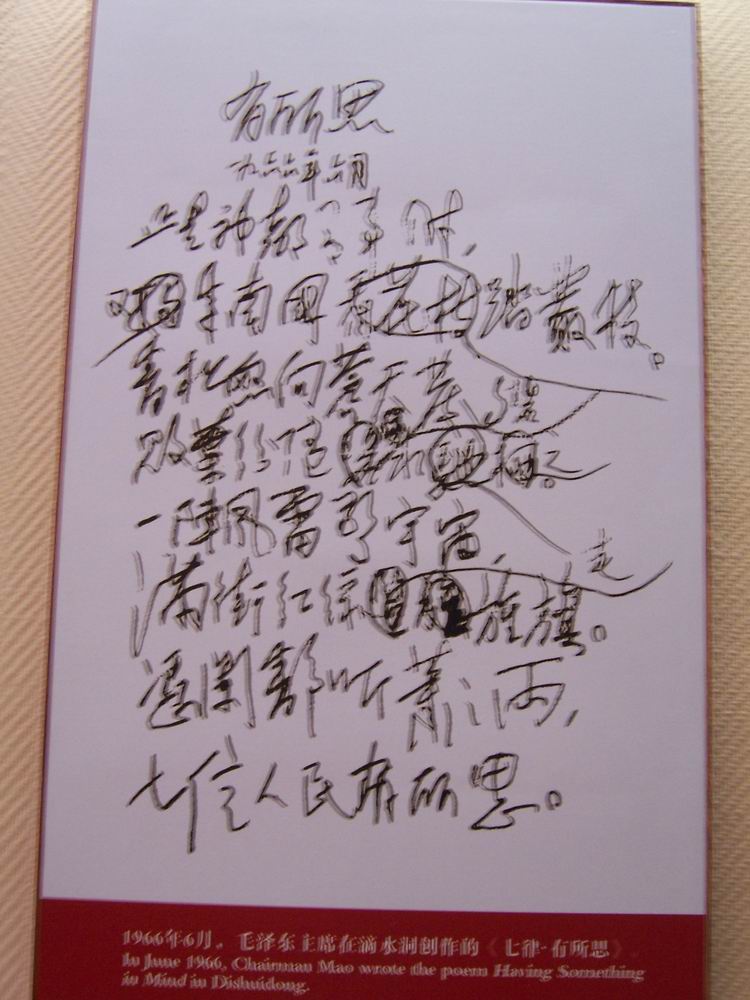 有所思
一九六六年六月
正是神都有事时，
又来南国踏丛枝。
青松怒向苍天发，
败叶纷随碧水驰。
一阵风雷惊宇宙，
满街红绿走旌旗。
凭阑静听萧萧雨，
七亿人民有所思。
1966年6月，毛泽东主席在滴水洞创作的《七律·有所思》。
In June 1966, Chairman Mao wrote the poem Having Something
in Mind in Dishuidong.